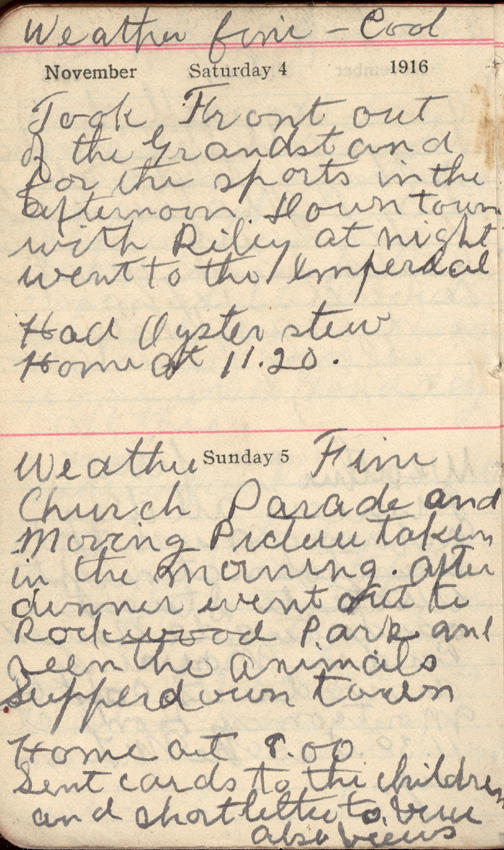 Weather fine - Cool
November Saturday 4 1916
Took Front out
of the Grandstand
for the sports in the
afternoon. Down town
with Riley at night
went to the Imperial
Had Oyster stew
Home at 11.20.
Weather Sunday 5 Fine
Church Parade and
Moving Picture taken
in the morning. After
dinner went out to
Rockwood Park and
seen the animals
Supper down town
Home at 8.00
Sent cards to the children
and short letter to
also views